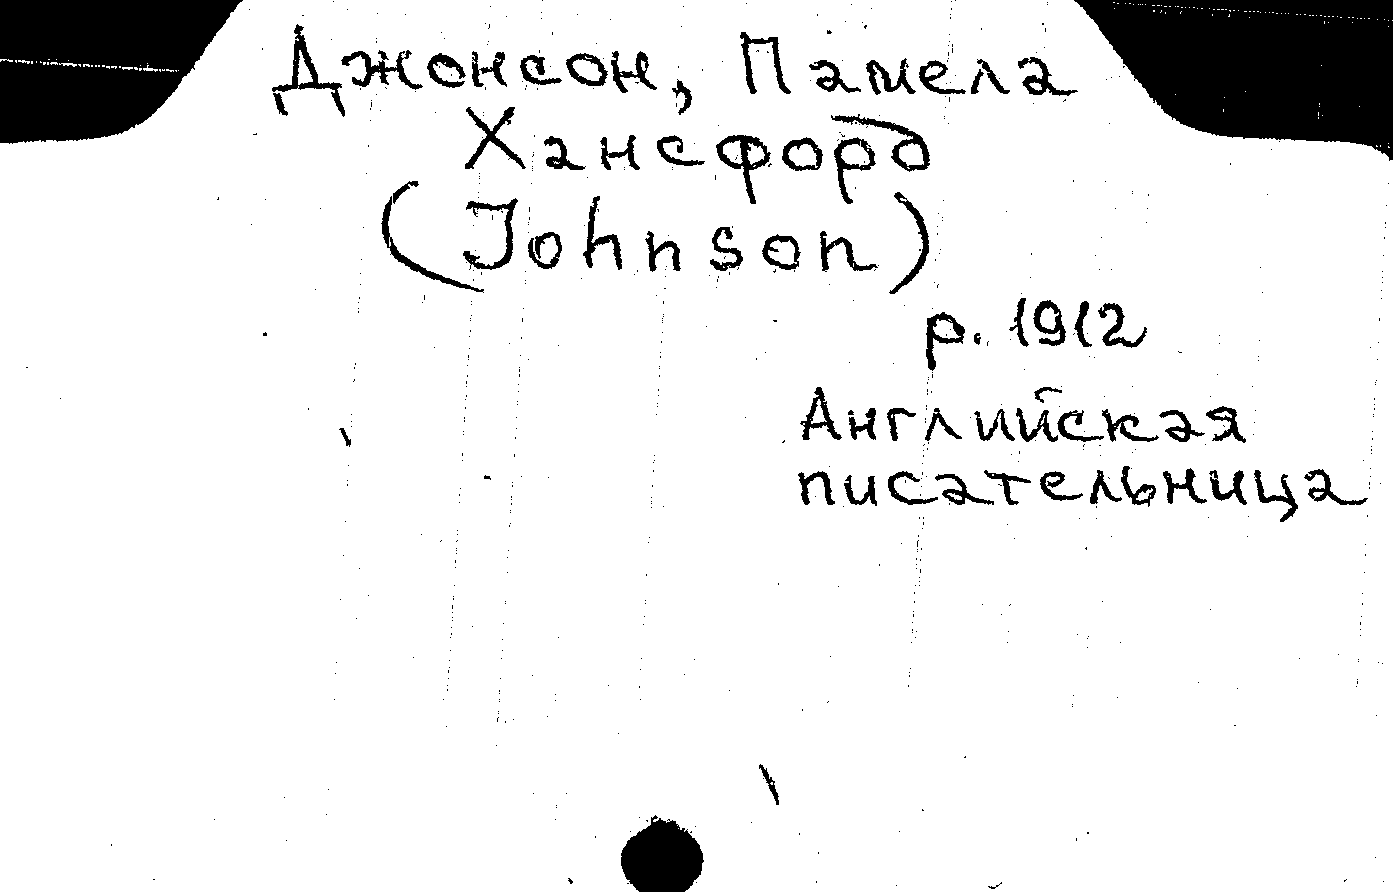 Джонсон, Памела
Хансфорд
(Johnson)
р. 1912
Английская
писательница